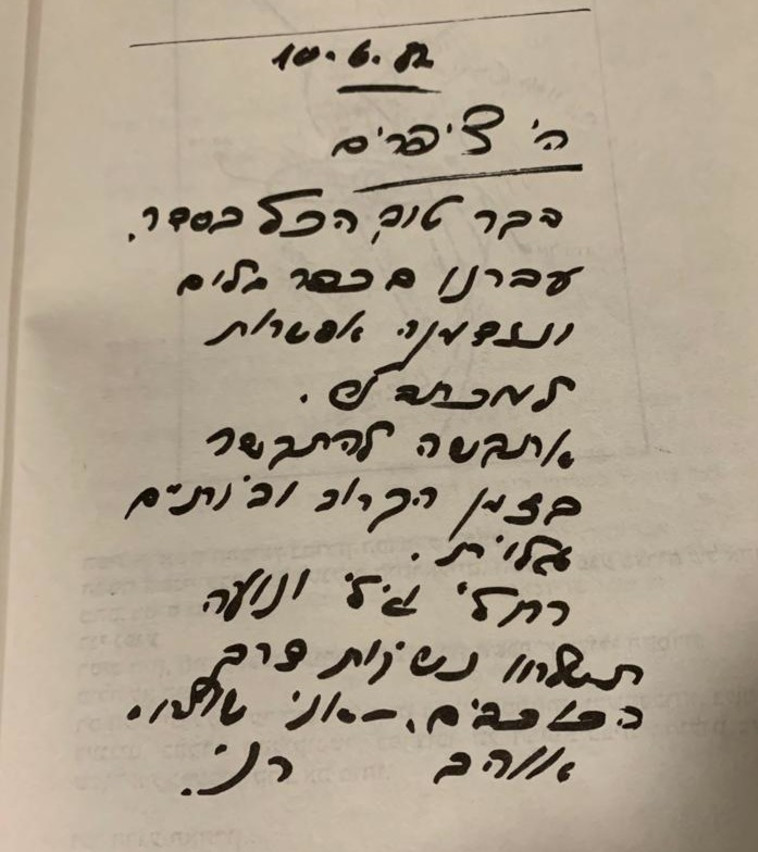 10.6.82
ה' ציפרים
דבר טוב, הכל בסדר.
עברנו בכפר גלים
ונזדמנה אפשרות
למכתב
אתקשה להתקשר
בזמן הקרוב ובינתיים
גלוית.
רחלי גילי ונועה
תשלחו נשיקות דרך
הכוכבים. - אני שולח.
אוהב רני.